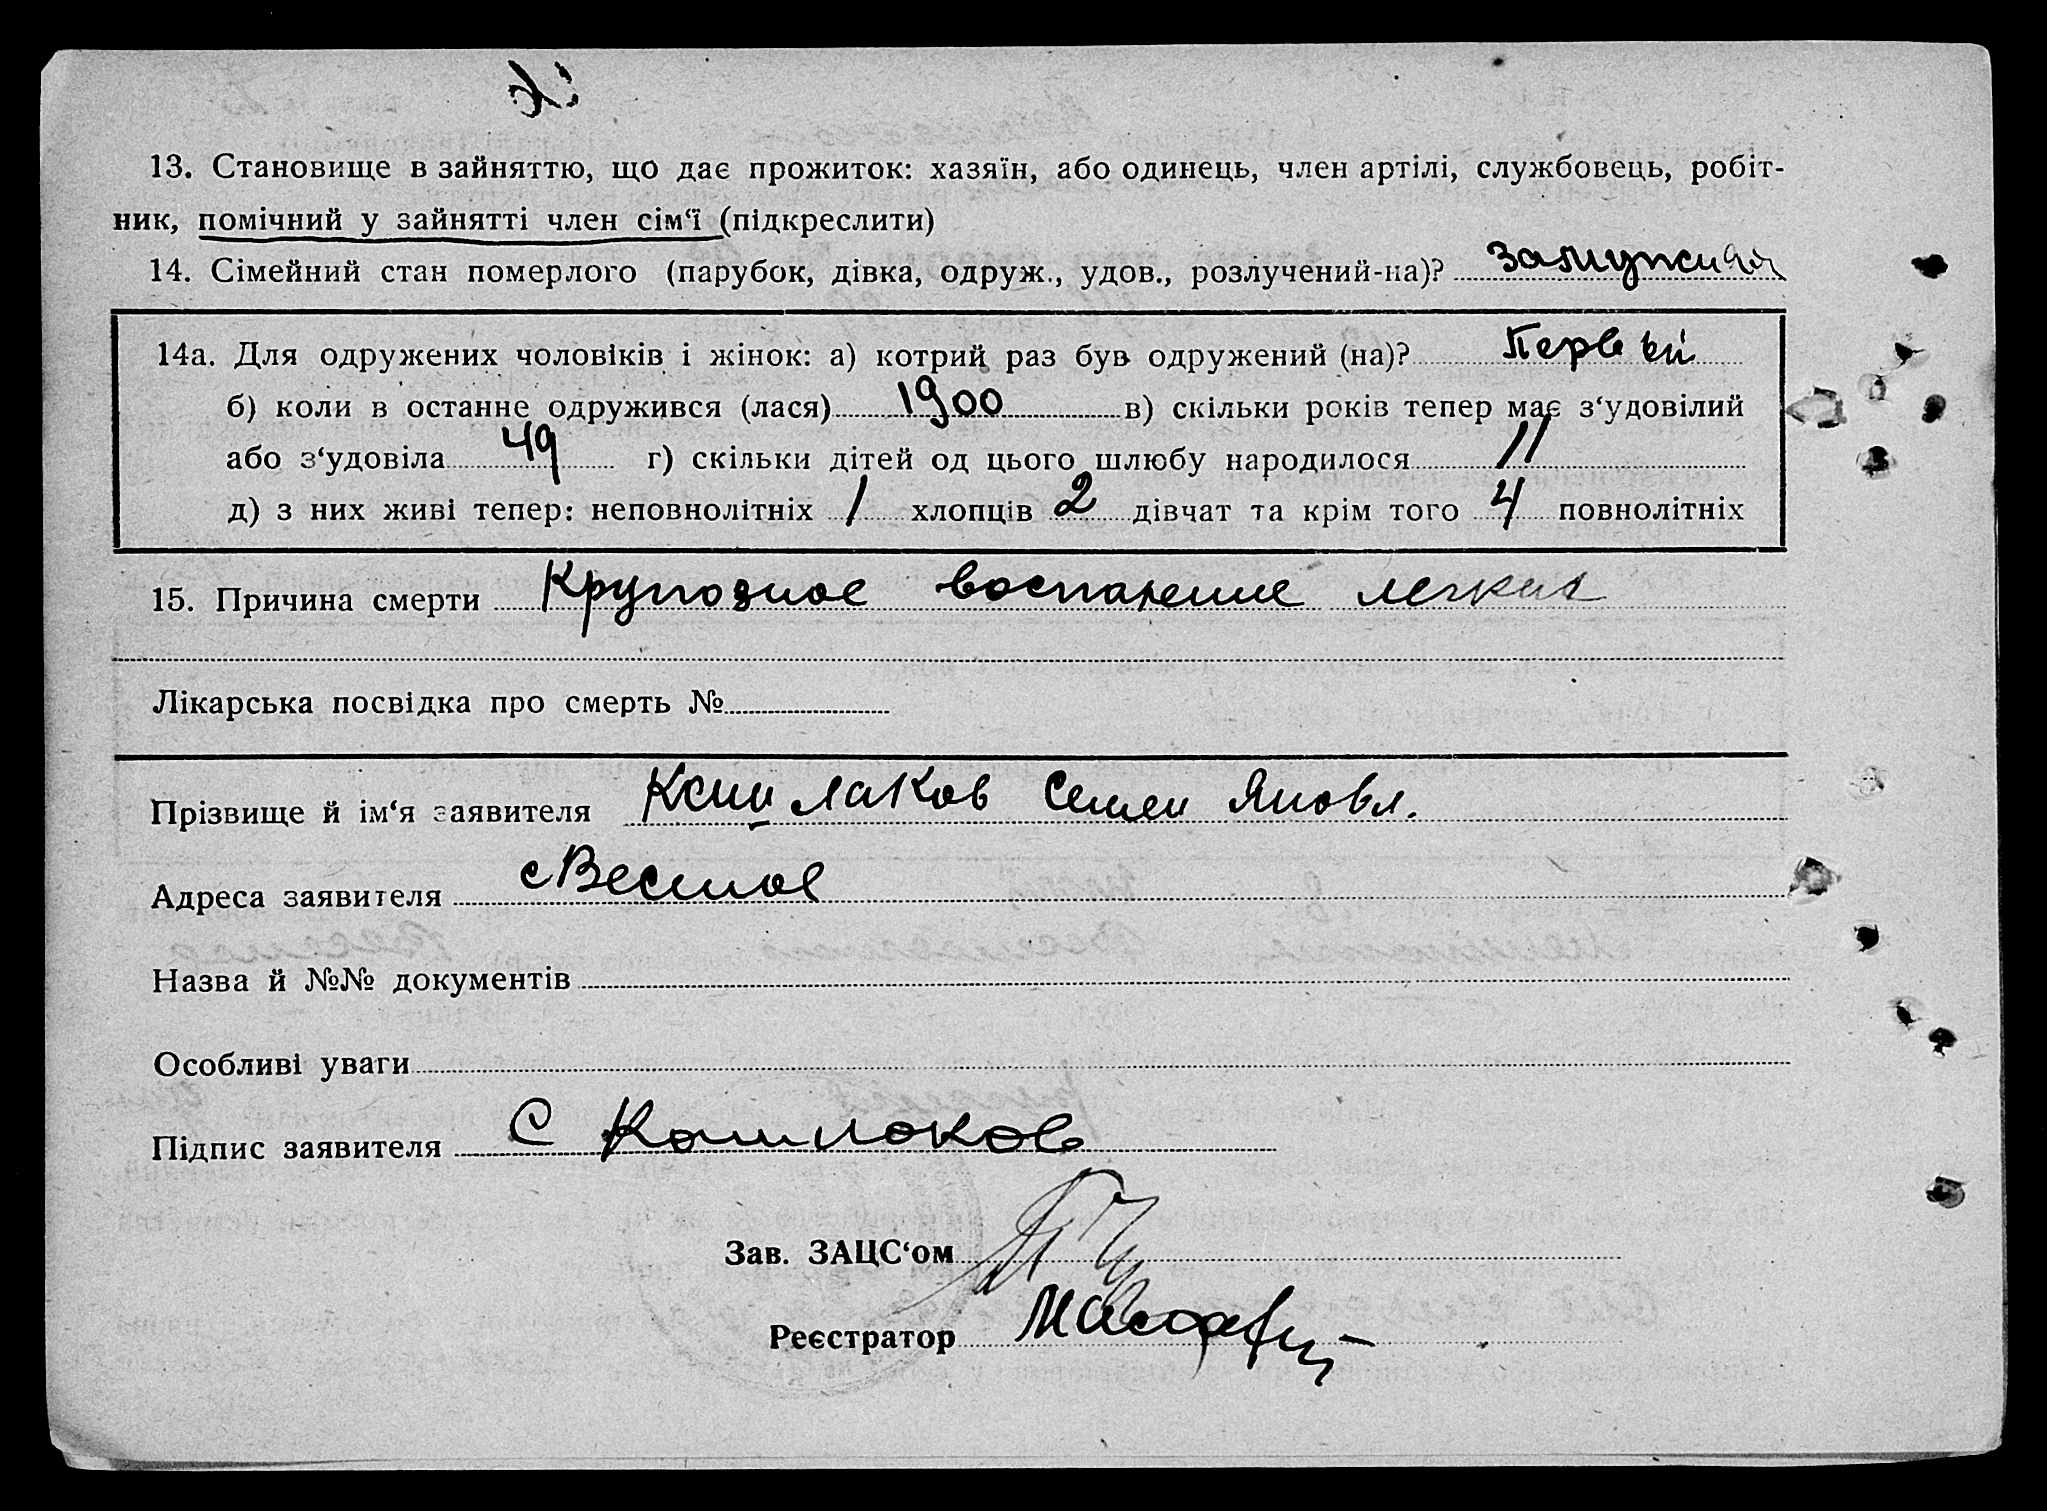 13. Становище в зайняттю, що дає прожиток: хазяїн, або одинець, член артілі, службовець, робіт-
ник, помічний у зайнятті член сім‘ї (підкреслити)
14. Сімейний стан померлого (парубок, дівка, одруж., удов., розлучений-на)? замужняя
14а. Для одружених чоловіків і жінок: а) котрий раз був одружений (на)? Первый
б) коли в останне одружився (лася) 1900 в) скільки років тепер має з‘удовілий
або з‘удовіла 49 г) скільки дітей од цього шлюбу народилося 11
д) з них живі тепер: неповнолітніх 1 хлопців 2 дівчат та крім того 4 повнолітніх
15. Причина смерти Крупозное воспаление легких
Лікарська посвідка про смерть №
Прізвище й ім‘я заявителя Кошлаков Семен Яковл.
Адреса заявителя с Веселое
Назва й №№ документів
Особливі уваги
Підпис заявителя С Кошлоков
Зав. ЗАЦС‘ом
Реєстратор